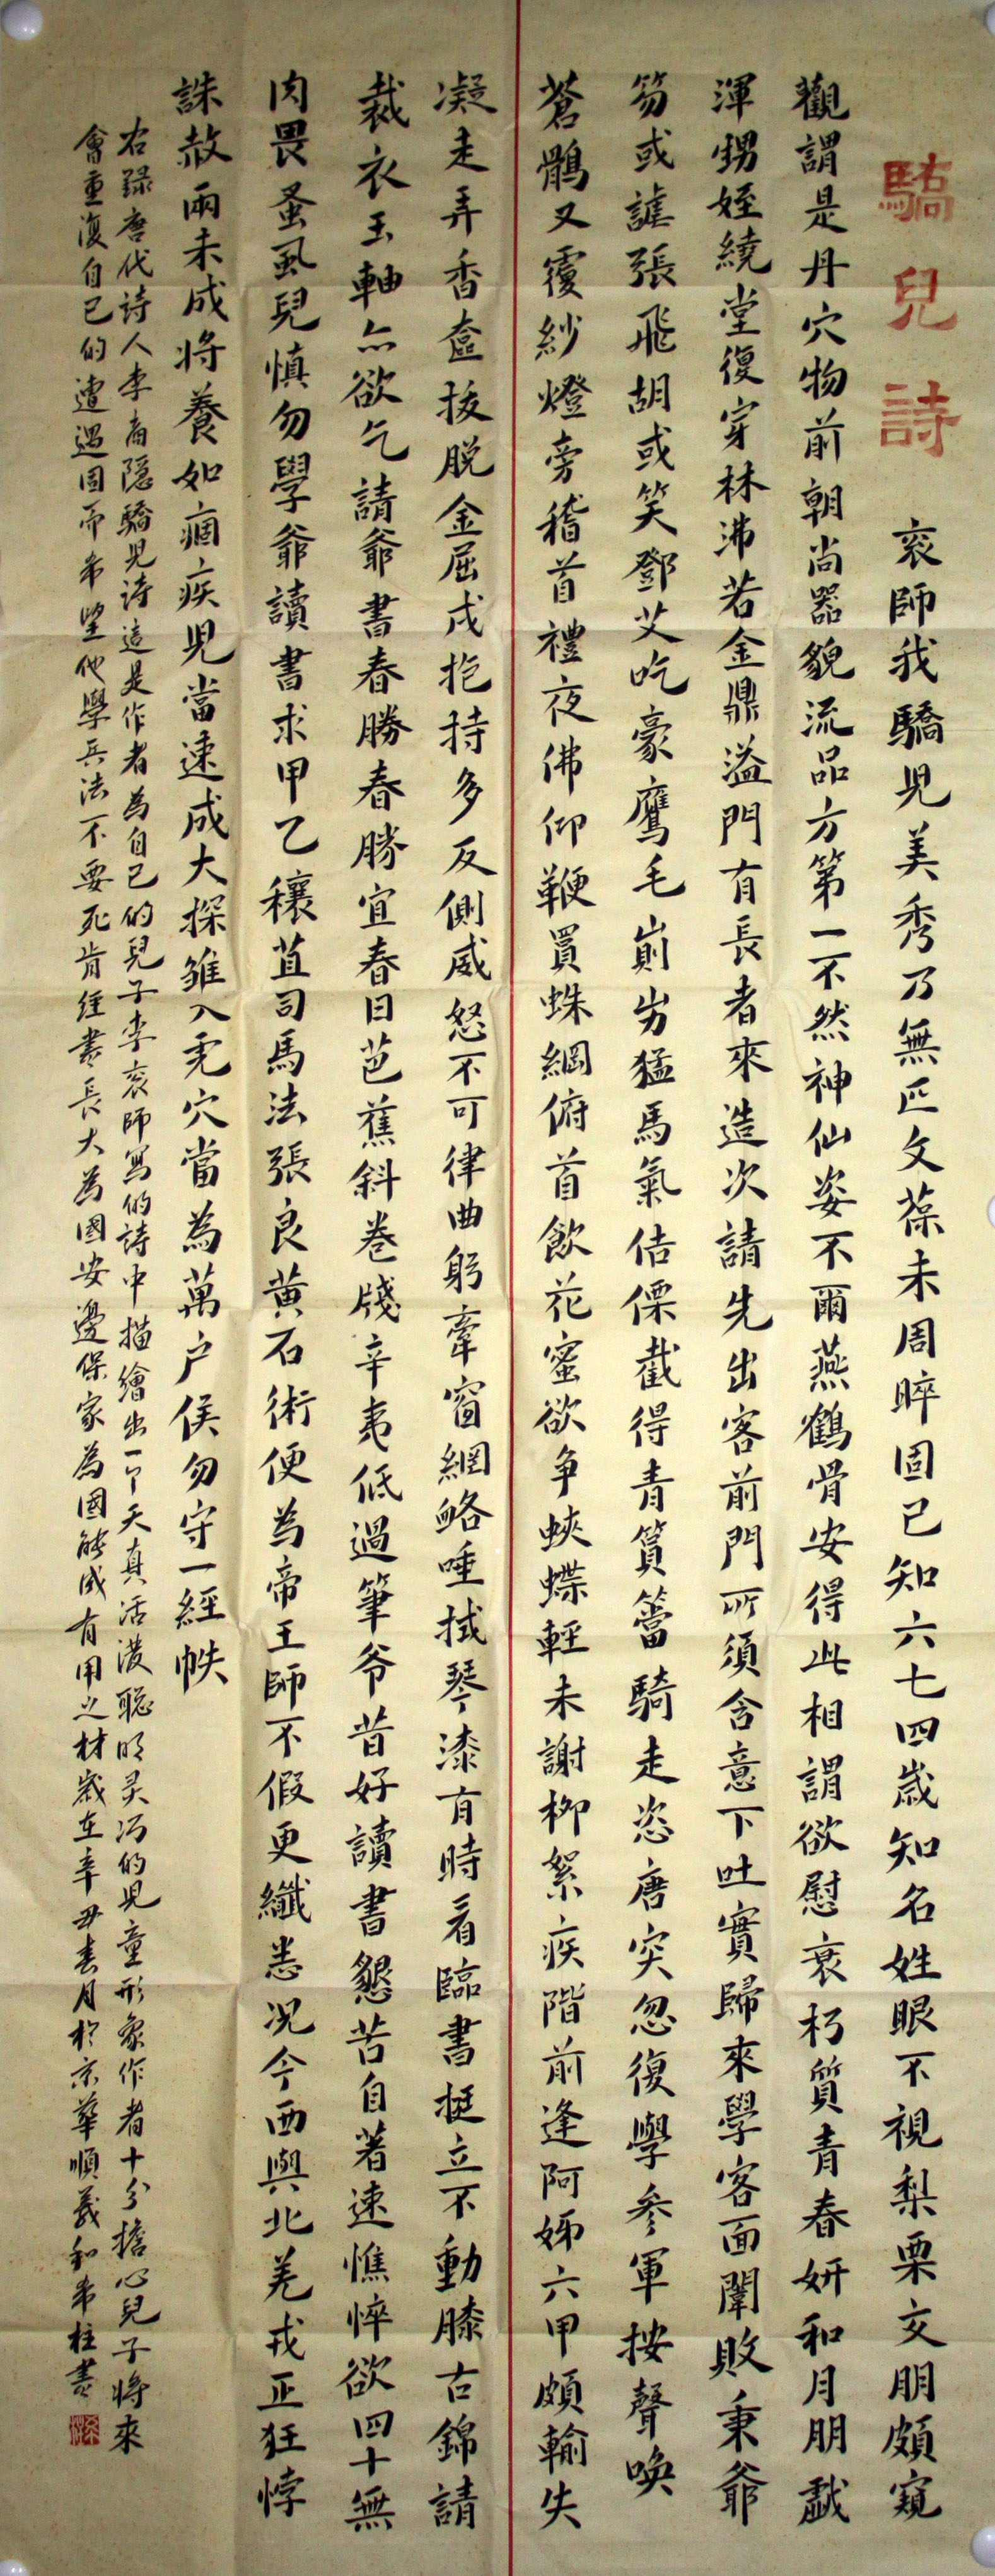 驕兒詩
衮師我驕兒美秀乃無匹文葆未周晬固已知六七四歲知名姓眼不視梨栗交朋頗窺
觀謂是丹穴物前朝尚器貌流品方第一不然神仙姿不爾燕鶴骨安得此相謂欲慰衰朽質青春妍和月朋戲
渾甥姪繞堂復穿林沸若金鼎溢門有長者來造次請先出客前問所須含意下吐實歸來學客面闈敗秉爺
笏或謔張飛胡或笑鄧艾吃豪鷹毛崱屴猛馬氣佶傈截得青篔簹騎走恣唐突忽復學參軍按聲喚
蒼鶻又覆紗燈旁稽首禮夜佛仰鞭罥蛛網俯首飲花蜜欲爭蛺蝶輕未謝柳絮疾階前逢阿姊六甲頗輸失
凝走弄香奩拔脱金屈戌抱持多反側威怒不可律曲躬牽窗網衉唾拭琴漆有時看臨書挺立不動膝古錦請
裁衣玉軸亦欲乞請爺書春勝春勝宜春日芭蕉斜卷牋辛夷低過筆爺昔好讀書懇苦自著述憔悴欲四十無
肉畏蚤虱兒慎勿學爺讀書求甲乙穰苴司馬法張良黄石術便為帝王師不假更纖悉况今西與北羌戎正狂悖
誅赦兩未成將養如痼疾兒當速成大探雛入虎穴當為萬户侯勿守一經帙
右録唐代詩人李商隱驕兒詩這是作者為自己的兒子李衮師寫的詩中描繪出一个天真活潑聰明灵巧的兒童形象作者十分擔心兒子將來
會重復自己的遭遇因而希望他學兵法不要死背經書長大為國安邊保家為國能成有用之材歲在辛丑春月於京華順義和希柱書